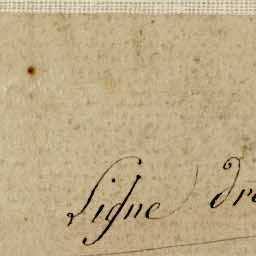 Ligne dr